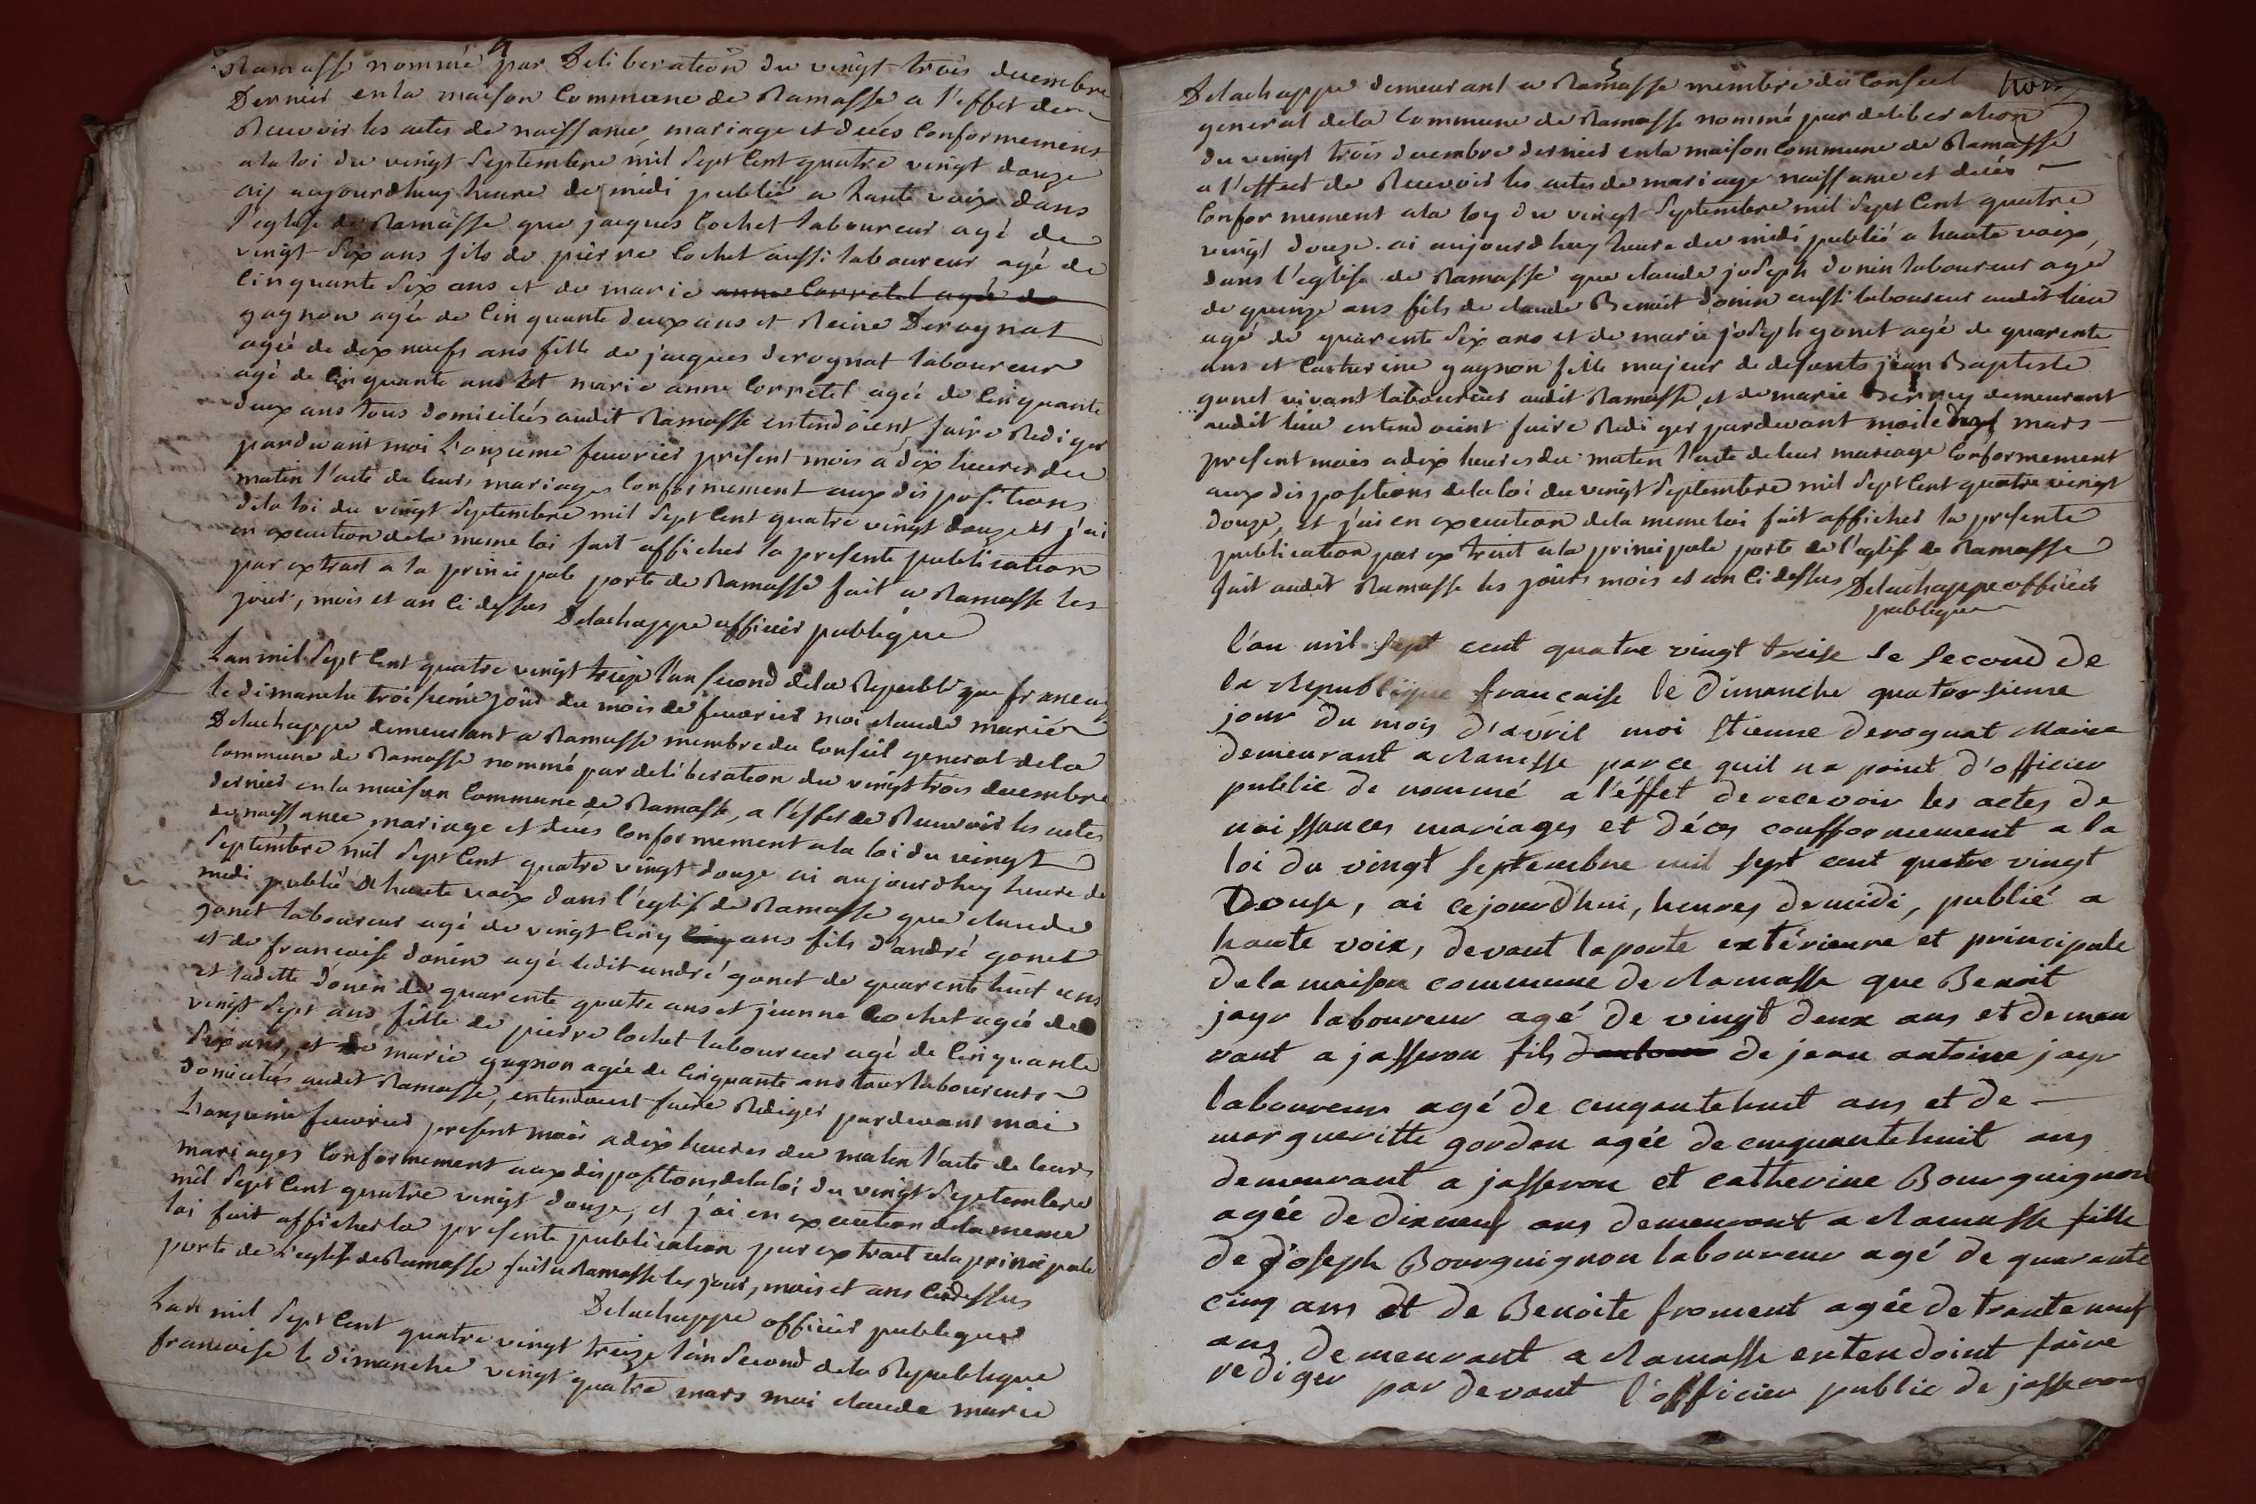 4
Ramasse nommé par Deliberation du vingt trois decembre
Dernier en la maison Commune de Ramasse a l'effet de
Recevoir les actes de naissance, mariage et deces Conformement
a la loi du vingt Septembre mil Sept Cent quatre vingt douze
ai aujourdhuy heure de midi publié a haute voix dans
l'eglise de Ramasse que jacques Cochet laboureur agé de
vingt Six ans fils de pierre Cochet aussi laboureur agé de
Cinquante Six ans et de marie anne Corretel agée de
gagnon agée de Cinquante deux ans et Reine Derognat
agée de dix neufs ans fille de jacques derognat laboureur
agé de Cinquante ans et marie anne Corretel agée de Cinquante
deux ans tous domiciliés audit Ramasse entendoient faire Rediger
pardevant moi L'onzieme fevrier present mois a dix heures du
matin l'acte de leurs mariages Conformement aux dispositions
dela loi du vingt Septembre mil Sept Cent quatre vingt douze et j'ai
en execution dela meme loi fait afficher la presente publication
par extrait a la principale porte de Ramasse fait a Ramasse les
jour, mois et an Ci dessus Delachappe officier publique
L'an mil Sept Cent quatre vingt treize l'an Second dela Republique francaise
le dimanche troisieme jour du mois de fevrier moi claude marie
Delachappe demeurant a Ramasse membre du Conseil general dela
Commune de Ramasse nommé par deliberation du vingt trois decembre
dernier en la maison Commune de Ramasse, a l'effet de Recevoir les actes
de naissance, mariage et deces Conformement a la loi du vingt
Septembre mil Sept Cent quatre vingt douze ai aujourdhuy heure de
midi publié a haute voix dans l'eglise de Ramasse que claude
gonet laboureur agé de vingt Cinq ans fils d'andré gonet
et de francoise donin agé ledit andré gonet de quarente huit ans
et ladette donin de quarente quatre ans et jeanne Cochet agée de
vingt Sept ans fille de pierre Cochet laboureur agé de Cinquante
Six ans, et de marie gagnon agée de Cinquante ans tous laboureurs
domiciliés audit Ramasse, entendoient faire Rediger pardevant moi
L'onzieme fevrier present mois a dix heures du matin l'acte de leurs
mariages Conformement aux dispositions dela loi du vingt Septembre
mil Sept Cent quatre vingt douze, et j'ai en execution dela meme
loi fait afficher la presente publication par extrait a la principale
porte de l'eglise de Ramasse fait a Ramasse les jour, mois et ans Ci dessus
Delachappe officier publique
L'an mil Sept Cent quatre vingt treize l'an Second dela Republique
francoise le dimanche vingt quatre mars moi claude marie
5
Delachappe demeurant a Ramasse membre du Conseil
general dela Commune de Ramasse nommé par deliberation
du vingt trois decembre dernier en la maison Commune de Ramasse
a l'effet de Recevoir les actes de mariage naissance et deces
Conformement a la loy du vingt Septembre mil Sept Cent quatre
vingt douze. ai aujourdhuy heure du midi publié a haute voix
dans l'eglise de Ramasse que claude joseph donin laboureur agé
de quinze ans fils de claude Benoit donin aussi laboureur audit lieu
agé de quarente Six ans et de marie joseph gonet agé de quarente
ans et Catherine gagnon fille majeur de defunts jean Baptiste
gonet vivant laboureur audit Ramasse, et de marie demeurant
audit lieu entendoient faire Rediger pardevant moi le mars
present mois a dix heures du matin l'acte de leur mariage Conformement
aux dispositions dela loi du vingt Septembre mil Sept Cent quatre vingt
douze, et j'ai en execution dela meme loi fait afficher la presente
publication par extrait a la principale porte de l'eglise de Ramasse
fait audit Ramasse les jours mois et an Ci dessus Delachappe officier
publique
l'an mil sept cent quatre vingt treise le second de
la Republique francaise le dimanche quatorsieme
jour du mois d'avril moi Etienne derognat Maire
demeurant a Ramasse parce quil na point d'officier
public de nommé a l'éffet de recevoir les actes de
naissances mariages et déces confformement a la
loi du vingt septembre mil sept cent quatre vingt
Douse, ai cejourd'hui, heures de midi, publié a
haute voix, devant la porte extérieure et principale
de la maison commune de Ramasse que Benoit
jayr laboureur agé de vingt deux ans et demeu
rant a jasseron fils de jean antoine jayr
laboureur agé de cinquante huit ans et de
margueritte gordon agée de cinquante huit ans
demeurant a jasseron et catherine Bourguignon
agée de dixneuf ans demeurant a Ramasse fille
de joseph Bourguignon laboureur agé de quarante
cinq ans et de Benoite froment agée de trante neuf
ans demeurant a Ramasse entendoint faire
rediger par devant l'officier public de jasseron